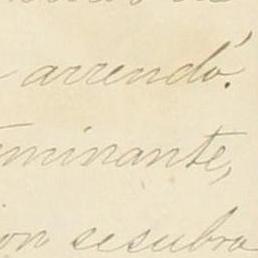 arrendó.
minante,
ion sesubra